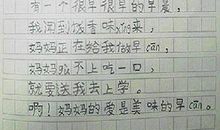 有一个很早很早的早晨，
我闻到饭香味xǐng来，
妈妈正在给我做早cān，
妈妈顾不上吃一口，
就要送我去上学。
啊！妈妈的爱是美味的早cān。